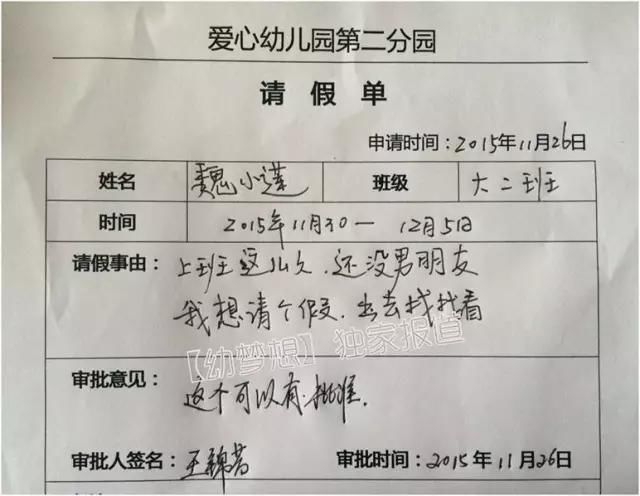 爱心幼儿园第二分园
请假单
申请时间：2015年11月26日
姓名 魏小莲 班级 大二班
时间 2015年11月30一 12月5日
请假事由：上班这么久，还没男朋友
我想请个假，出去找找看
【幼梦想】独家报道
审批意见：这个可以有，批准.
审批人签名：王锦 审批时间：2015年11月26日